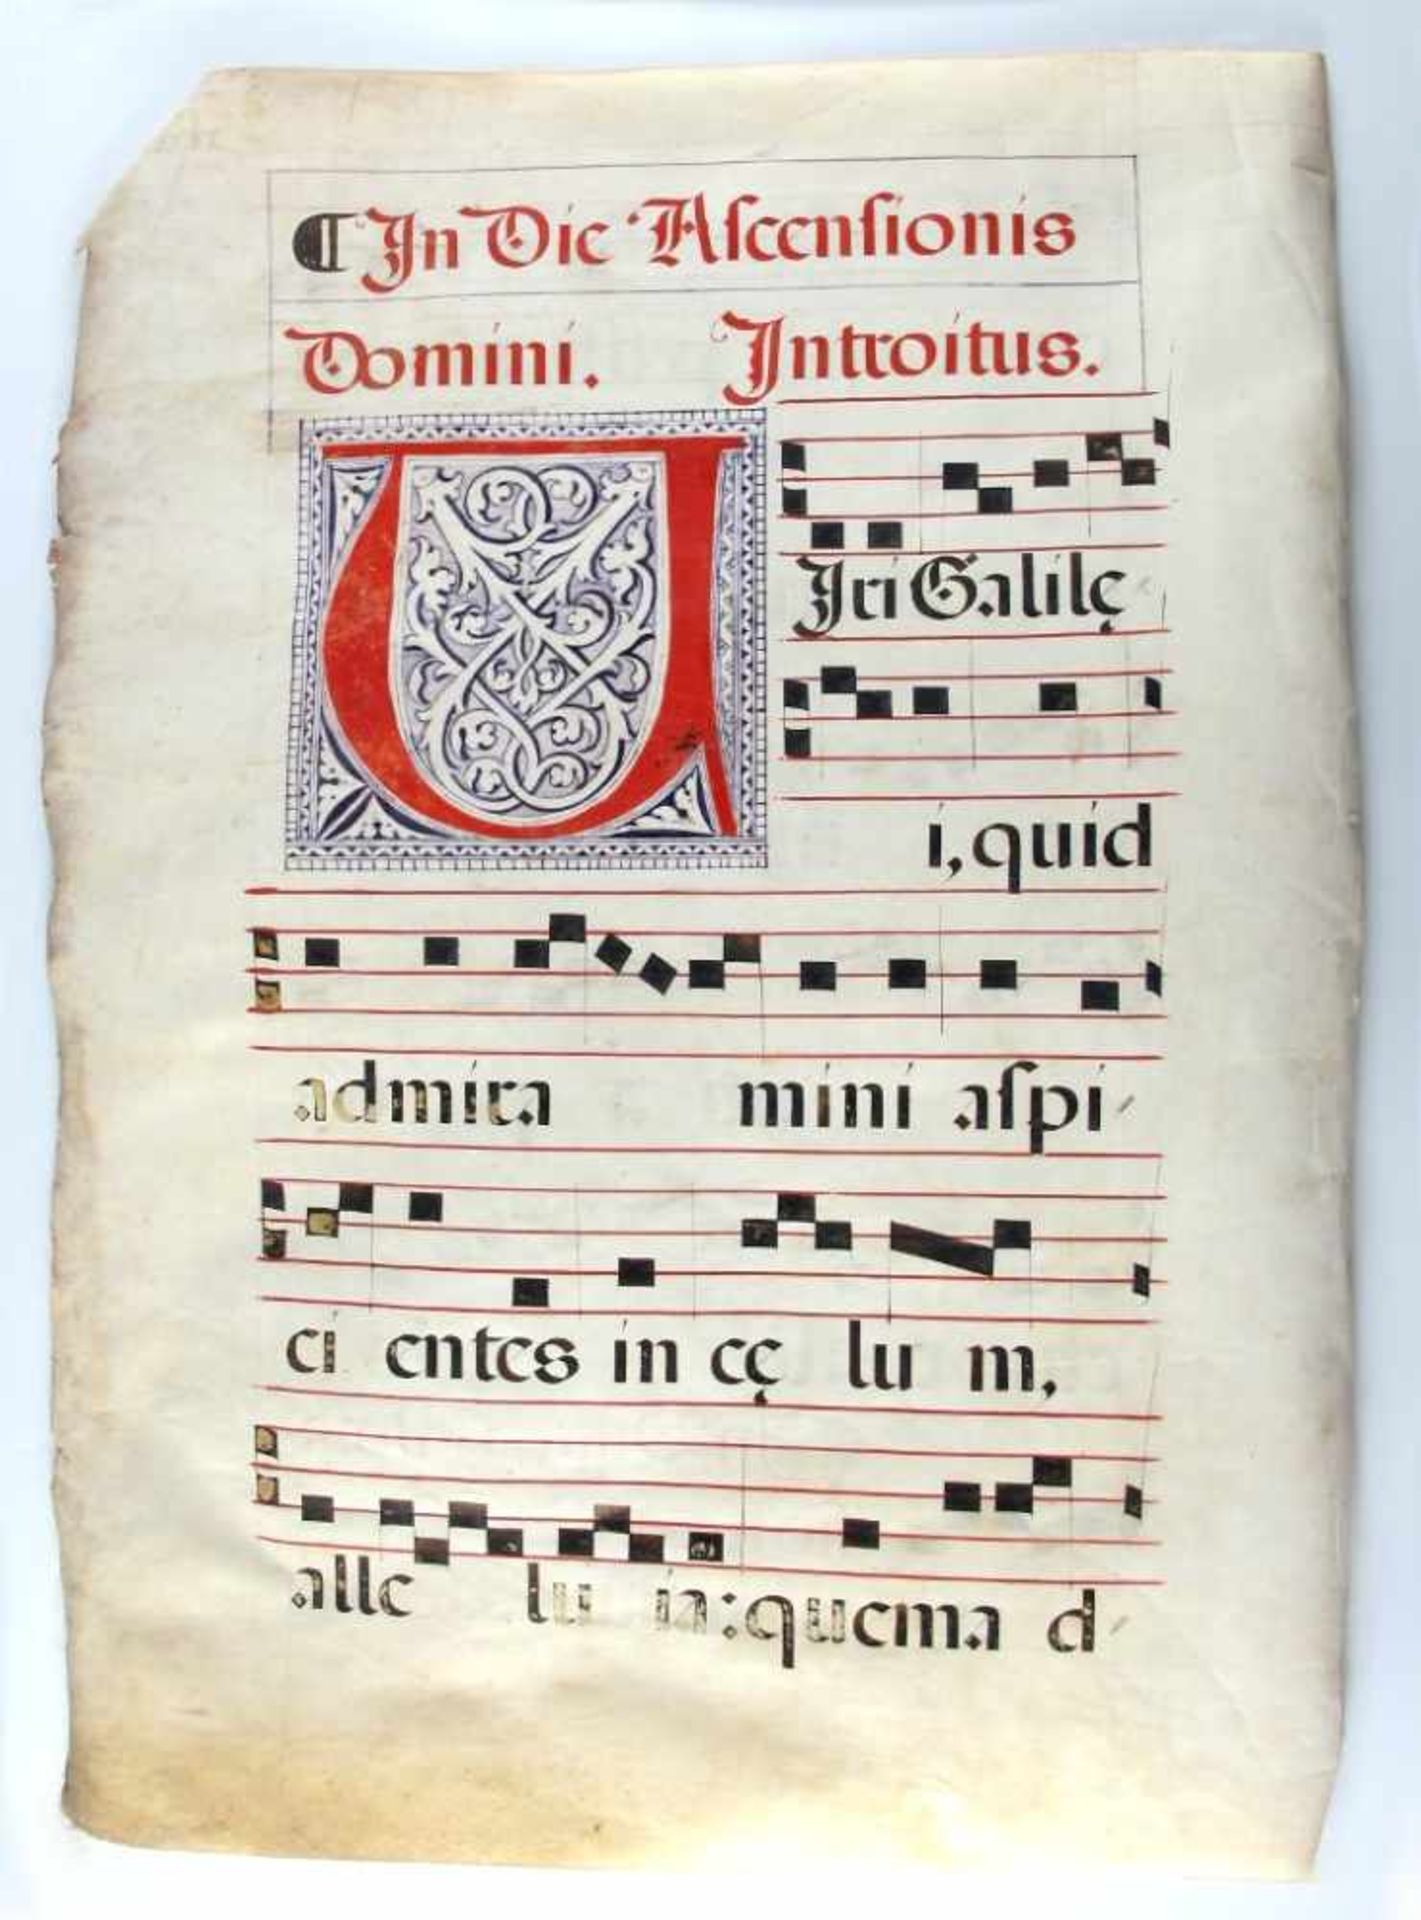 ¶ In Die Aſcenſionis
Domini. Introitus.
VIri Galilę
i, quid
admira mini aſpi-
ci entes in cę lu m,
alle lu ia: quema d-